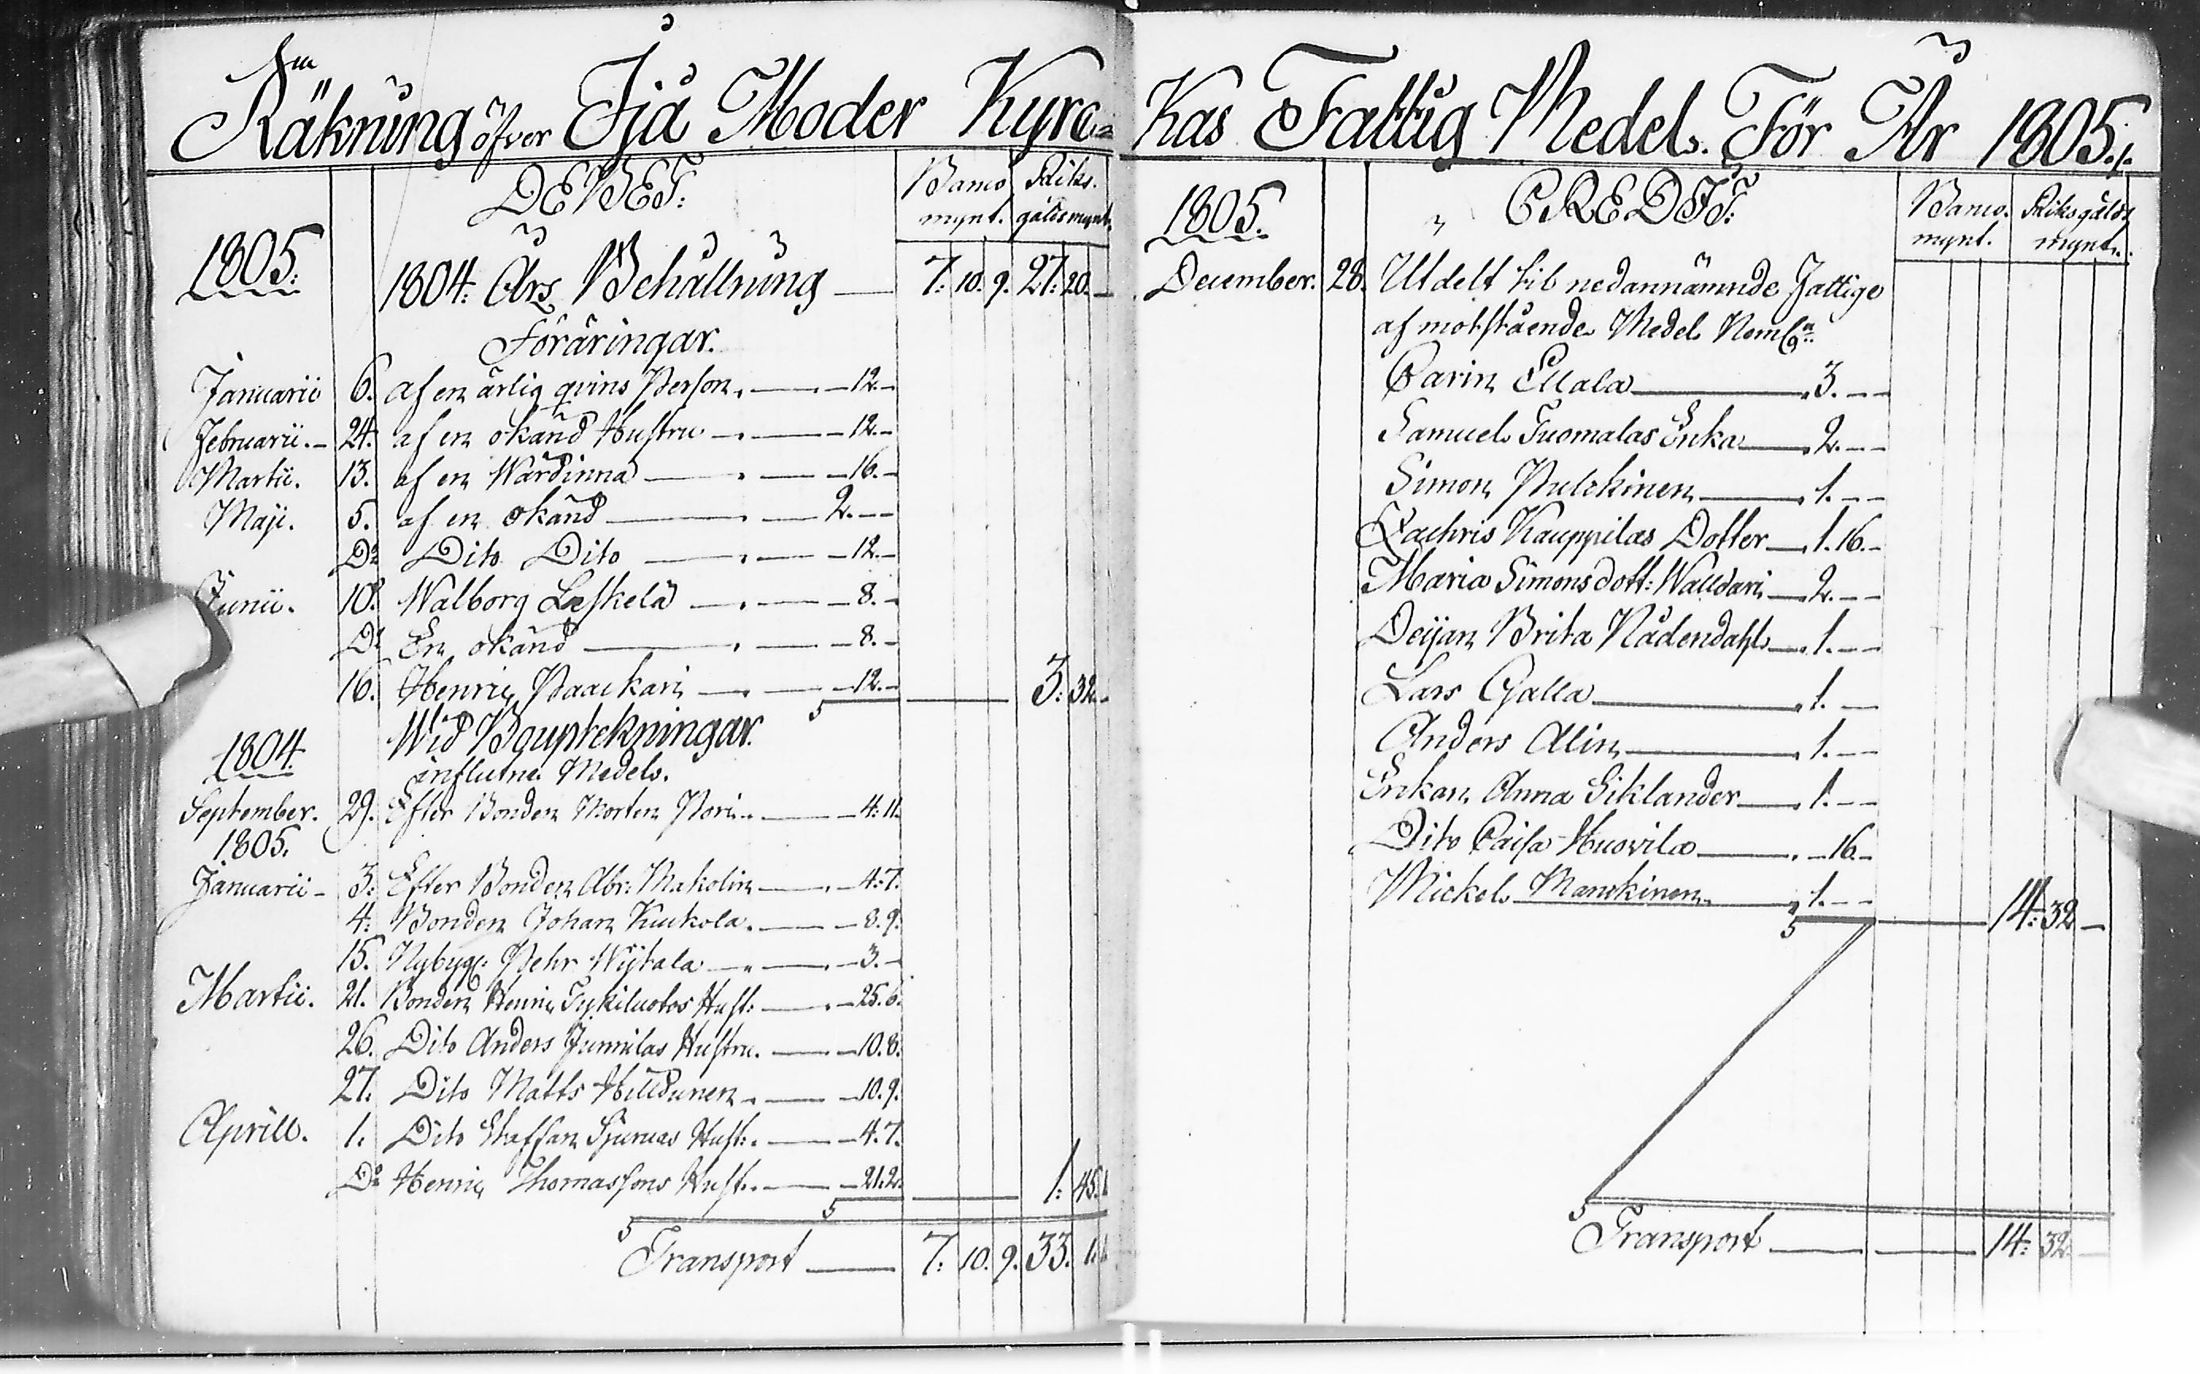 Räkning öfver Ijå Moder Kyrc=
DEBET:
Banco mynt. Riks gälds mynt.
1805: 1804: Års Behållning — 7: 10. 9. 27: 20. —
Föräringar.
Januarii 6. af en ärlig qvins Person. — 12. —
Februarii. — 24. af en okänd Hustru — 12. —
Martii. 13. af en Wärdinna — 16. —
Maji. 5. af en okänd — 2. — —
Do Dito Dito — 12. —
Junii. 10. Walborg Leskelä — 8. —
Do En okänd — 8. —
16. Henric Paackari — 12. — 3: 32. —
1804. Wid Bouptekningar.
influtne Medel.
September. 29. Efter Bonden Morten Pori — 4: 11.
1805.
Januarii — 3: Efter Bonden Abr: Makolin — 4: 7.
4: Bonden Johan Kuckola. — 8. 9.
15. Nybyg: Pehr Wijtala — 3. —
Martii. 21. Bonden Henric Tykiluotos Hust: — 25. 6.
26. Dito Anders Junnilas Hustru. — 10. 8.
27. Dito Matts Hilldunen. — 10. 9.
Aprill. 1. Dito Staffan Hust: — 4. 7.
Do Henric Thomassons Hust. — 21. 2. 1: 45. 1
Transport — 7: 10. 9. 33. 1.
Kas Fattig Medel. För År 1805./.
1805. CREDIT:
Banco. mynt. Riksgälds mynt.
December. 28. Utdelt til nedannämnde Fattige
af motstående Medel Neml:n
Carin Ellala — 3. — —
Samuel Tuomalas Enka — 2. — —
Simon Pulckinen — 1. — —
Zachris Kauppilas Dotter — 1. 16. —
Maria Simonsdott: Walldari — 2. — —
Deijan Brita Nådendahl — 1. — —
Lars Galla — 1. —
Anders Alin — 1. — —
Enkan Anna Siklander — 1. — —
Dito Caisa Huovila — 16. —
Mickel Manckinen — 1. — — 14: 32 —
Transport — 14: 32 —